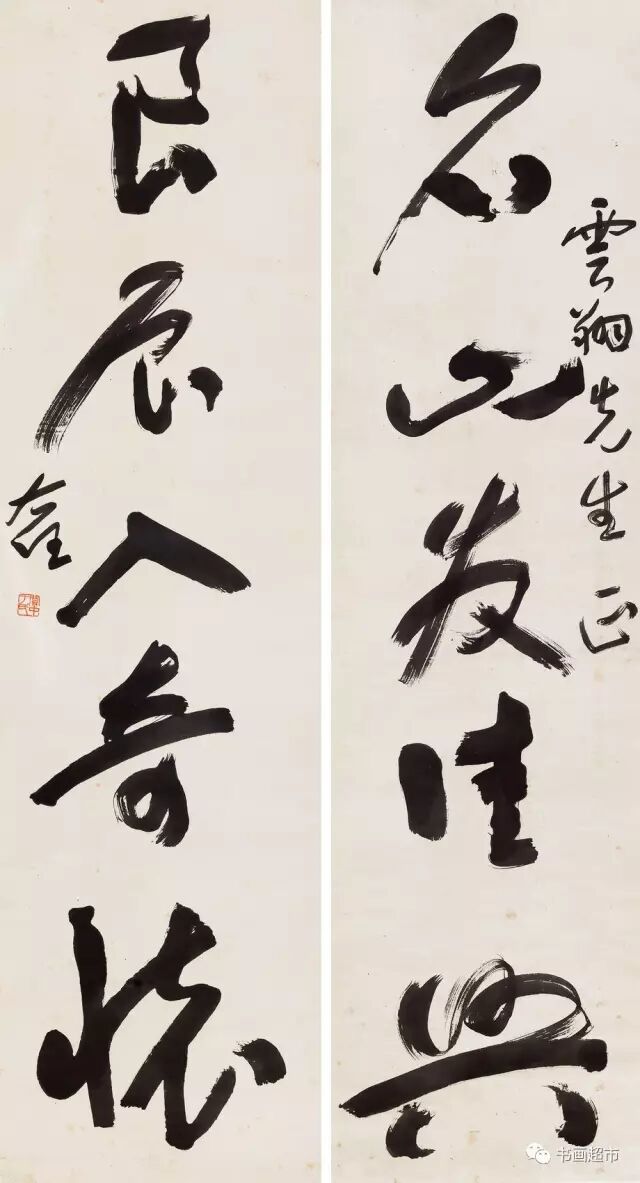 雲翔先生正
名山發佳興
良辰入奇懷
大壯
书画超市